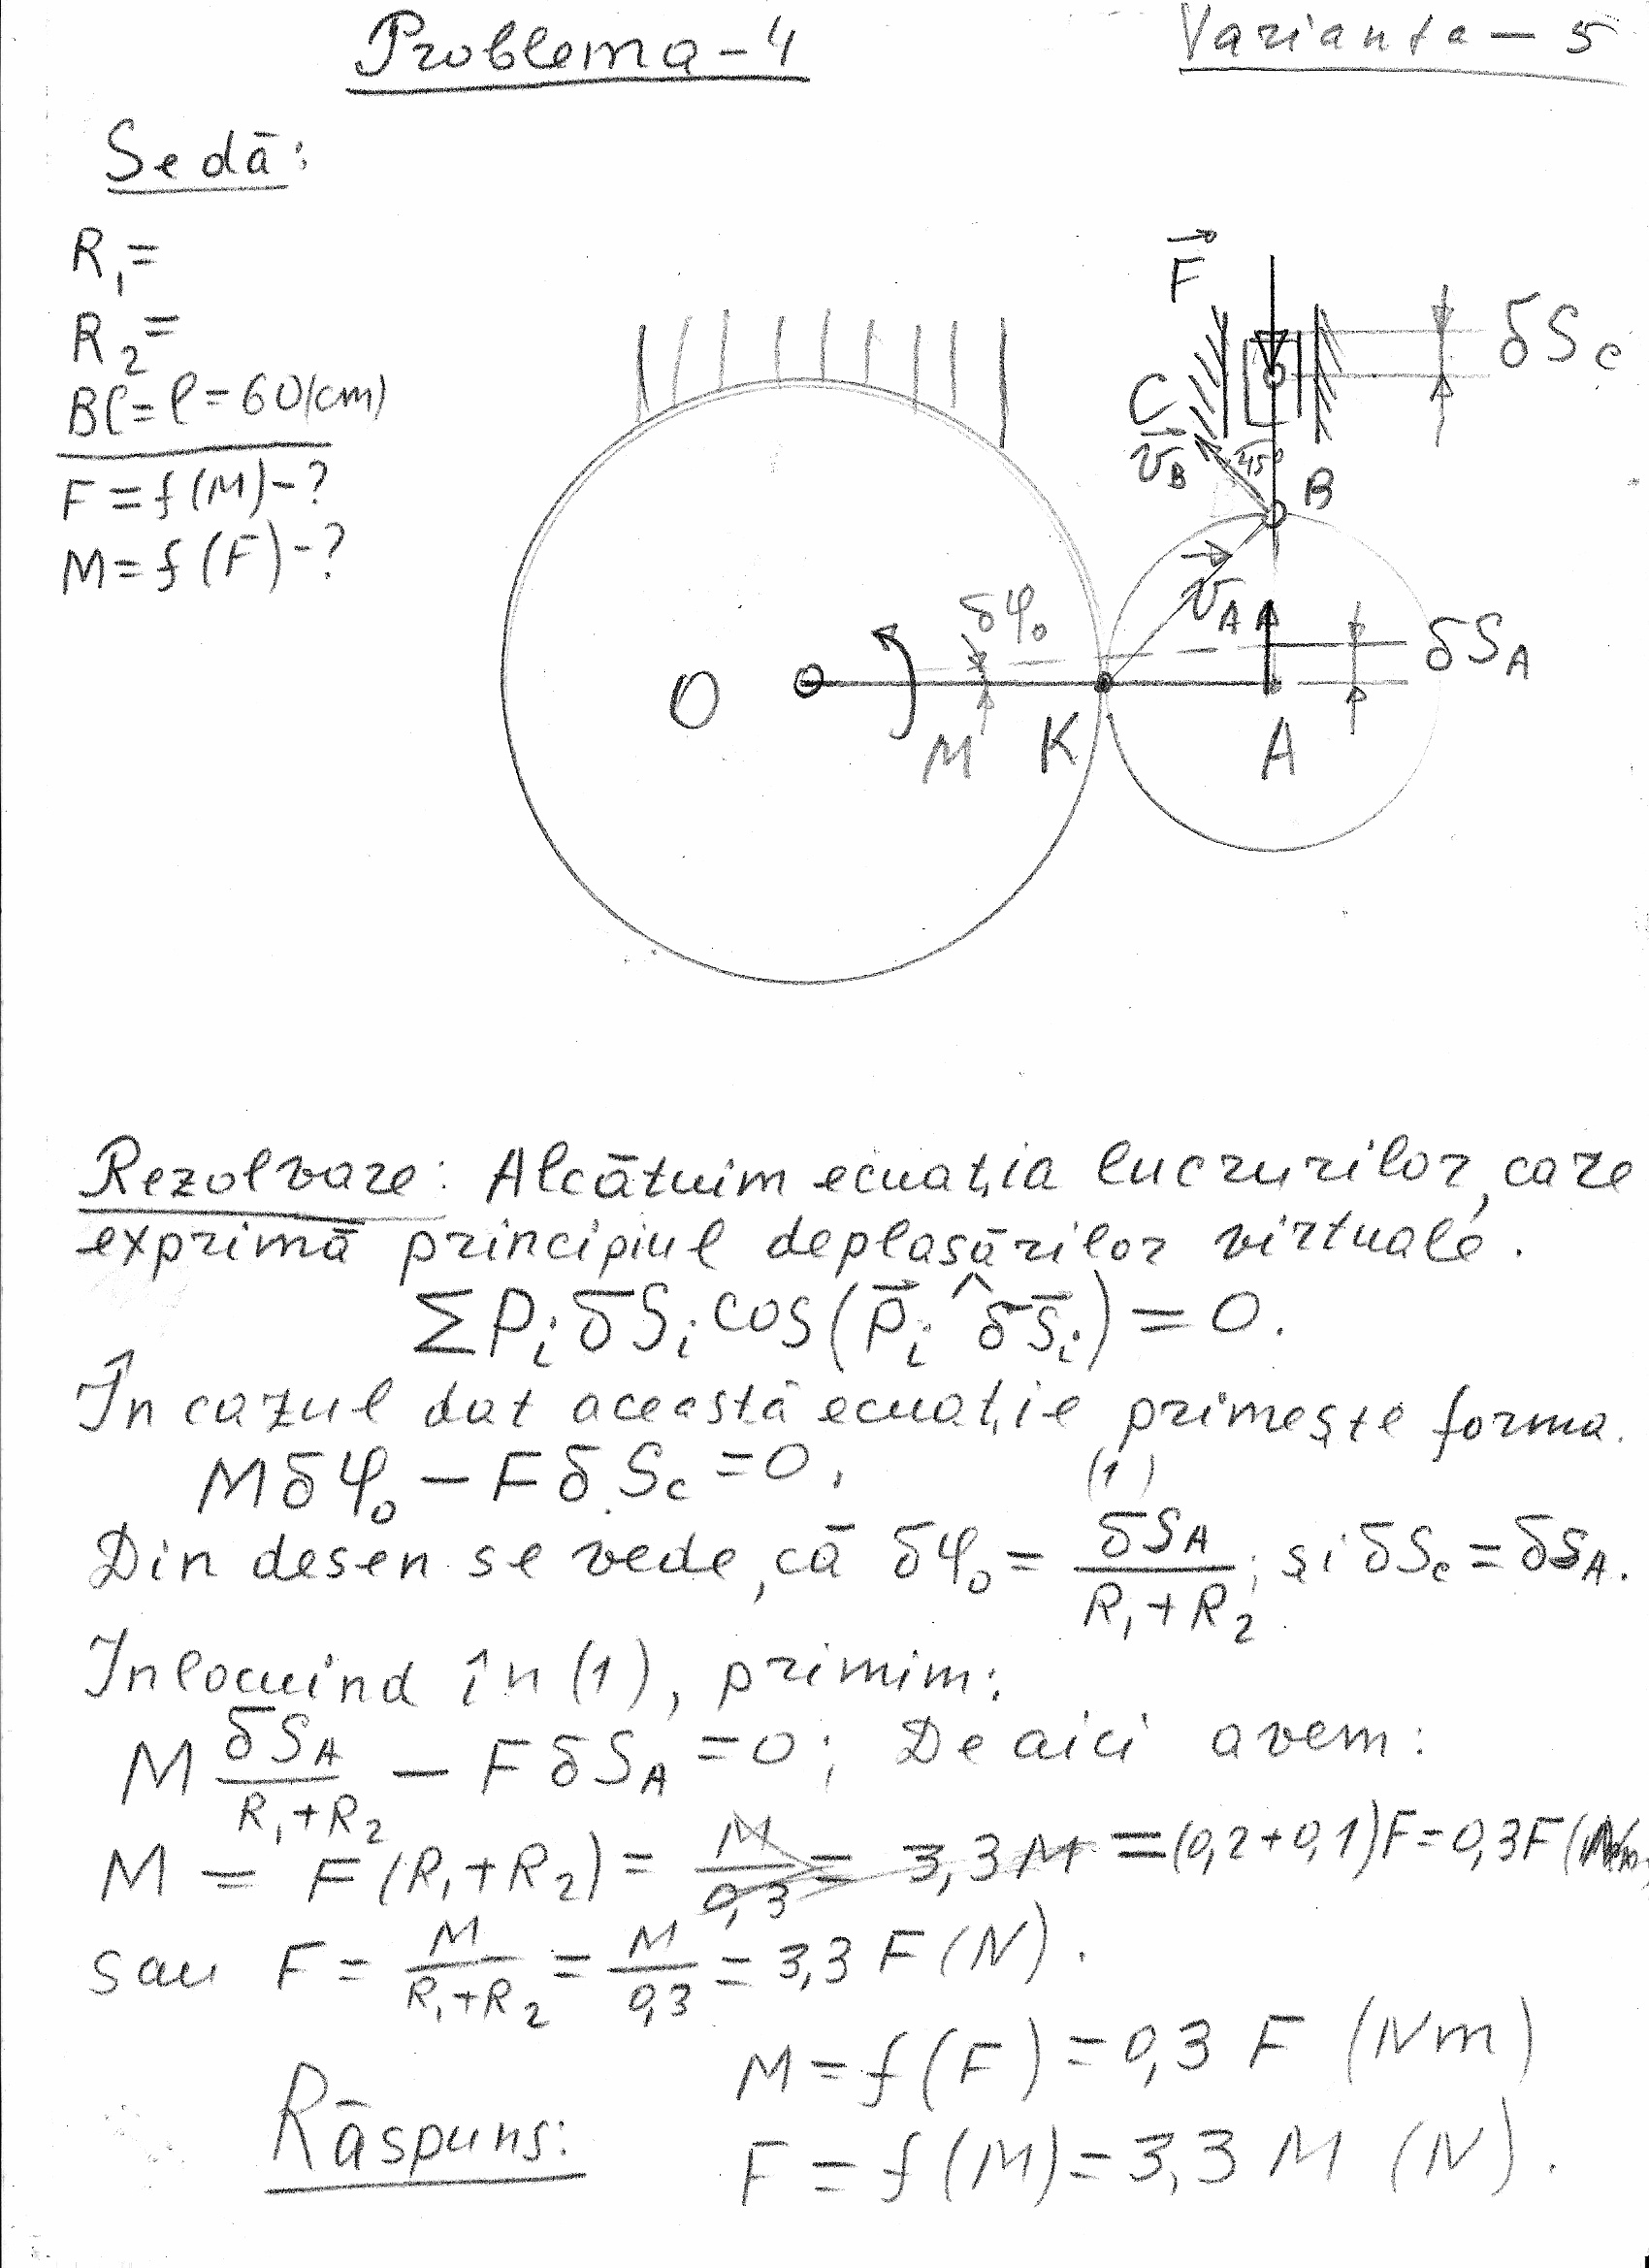 Problema-4
Varianta-5
Se dā:
R₁=
R₂=
BC=ℓ=60(cm)
F=f(M)-?
M=f(F)-?
F⃗
δSc
C
v⃗B
45°
B
v⃗A
δφ₀
δSA
O
M
K
A
Rezolvare: Alcătuim ecuația lucrurilor, care
exprimā principiul deplasărilor virtuale.
ΣPiδSi cos(P⃗i^δS̄i)=0.
În cazul dat această ecuație primește forma.
Mδφ₀-FδSc=0, (1)
Din desen se vede, cā δφ₀=δSA/(R₁+R₂); și δSc=δSA.
Inlocuind în (1), primim:
M δSA/(R₁+R₂) - FδSA=0; De aici avem:
M = F(R₁+R₂)= M/0,3 = 3,3M =(0,2+0,1)F=0,3F
sau F= M/(R₁+R₂) = M/0,3 = 3,3 F(N).
M=f(F)=0,3 F (Nm)
Rāspuns:
F=f(M)=3,3 M (N).